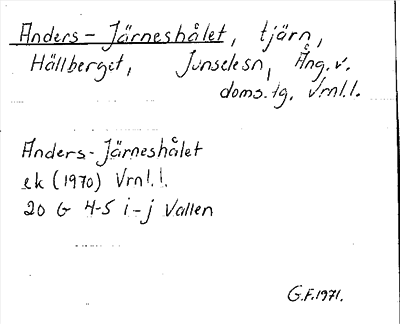 Anders-Järneshålet, tjärn,
Hällberget, Junselesn, Ång. v.
doms.tg. Vrnl.l.
Anders-Järneshålet
ek (1970) Vrnl.l.
20 G 4-5 i-j Vallen
G.F. 1971.